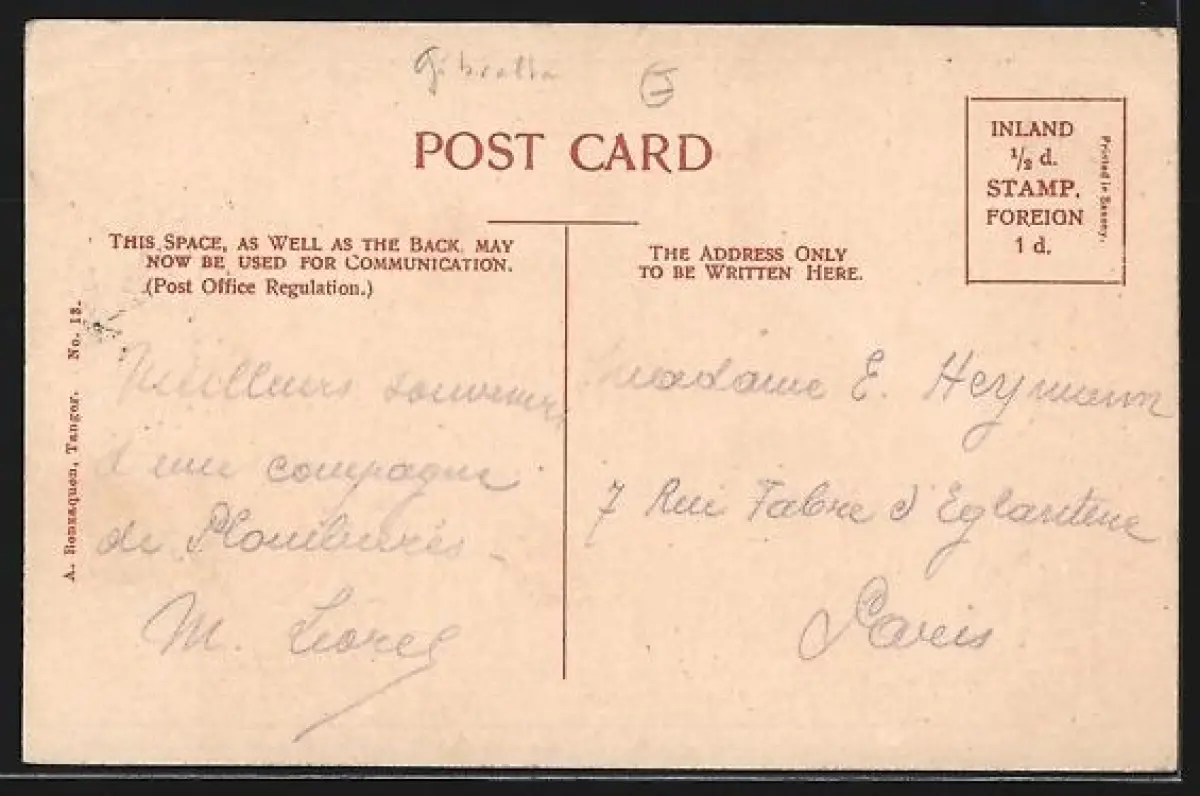 Gibralta
POST CARD
INLAND
½ d.
STAMP.
FOREIGN
1 d.
Printed in Saxony.
THIS SPACE, AS WELL AS THE BACK MAY
NOW BE USED FOR COMMUNICATION.
(Post Office Regulation.)
THE ADDRESS ONLY
TO BE WRITTEN HERE.
A. Benzaquen, Tanger. No. 13.
Meilleurs souvenirs
d'une compagne
de Plombières
M.
Madame E. Heymann
7 Rue Fabre d'Eglantine
Paris